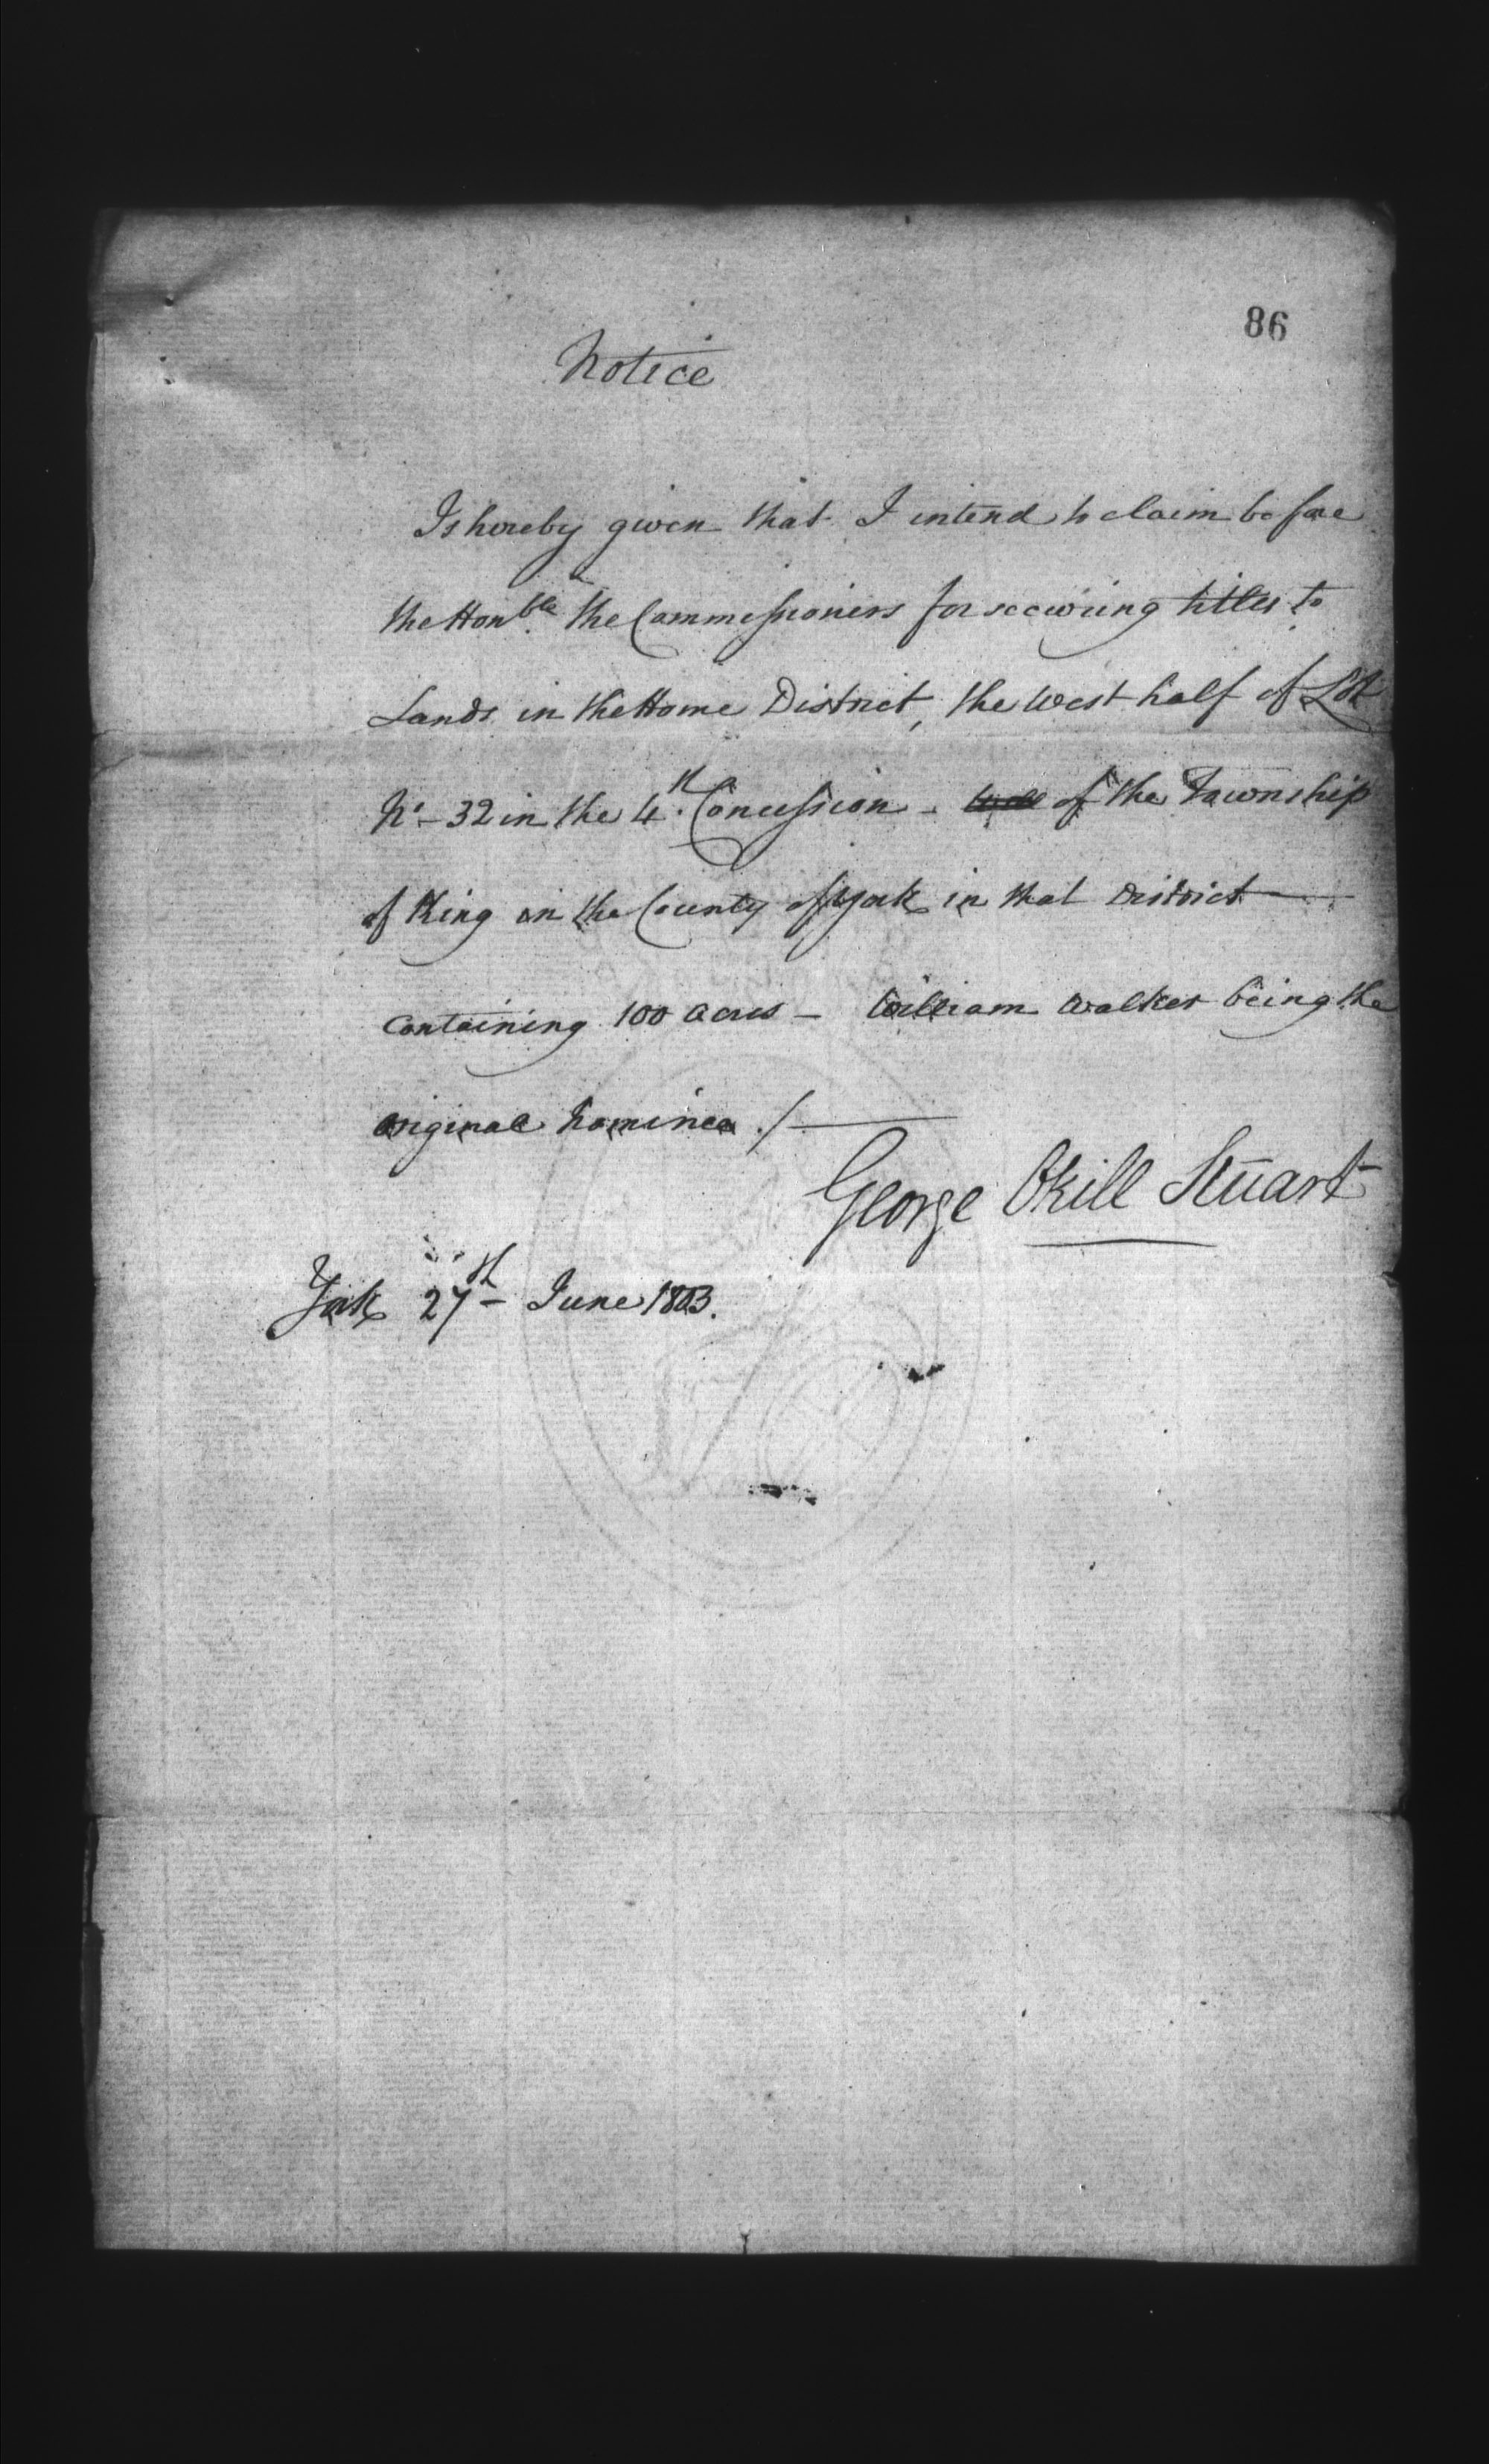 86
Notice
Is hereby given that I intend to claim before
the Honble. the Commissioners for securing titles to
Lands in the Home District, the West half of Lot
No - 32 in the 4th. Concession - of the Township
of King in the County of York in that District —
Containing 100 acres - William Walker being the
original nominee ./—
George Okill Stuart
York 27th - June 1803.